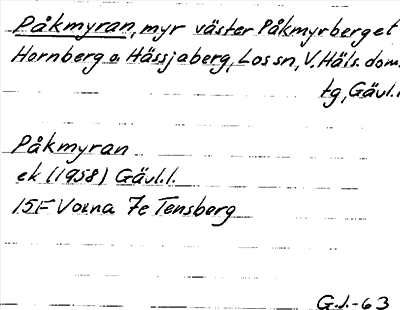 Påkmyran, myr väster Påkmyrberget
Hornberg o. Hässjaberg, Los sn, V. Häls. dom.
tg, Gävl.l.
Påkmyran
ek (1958) Gävl.l.
15F Voxna 7e Tensberg
G.J.-63